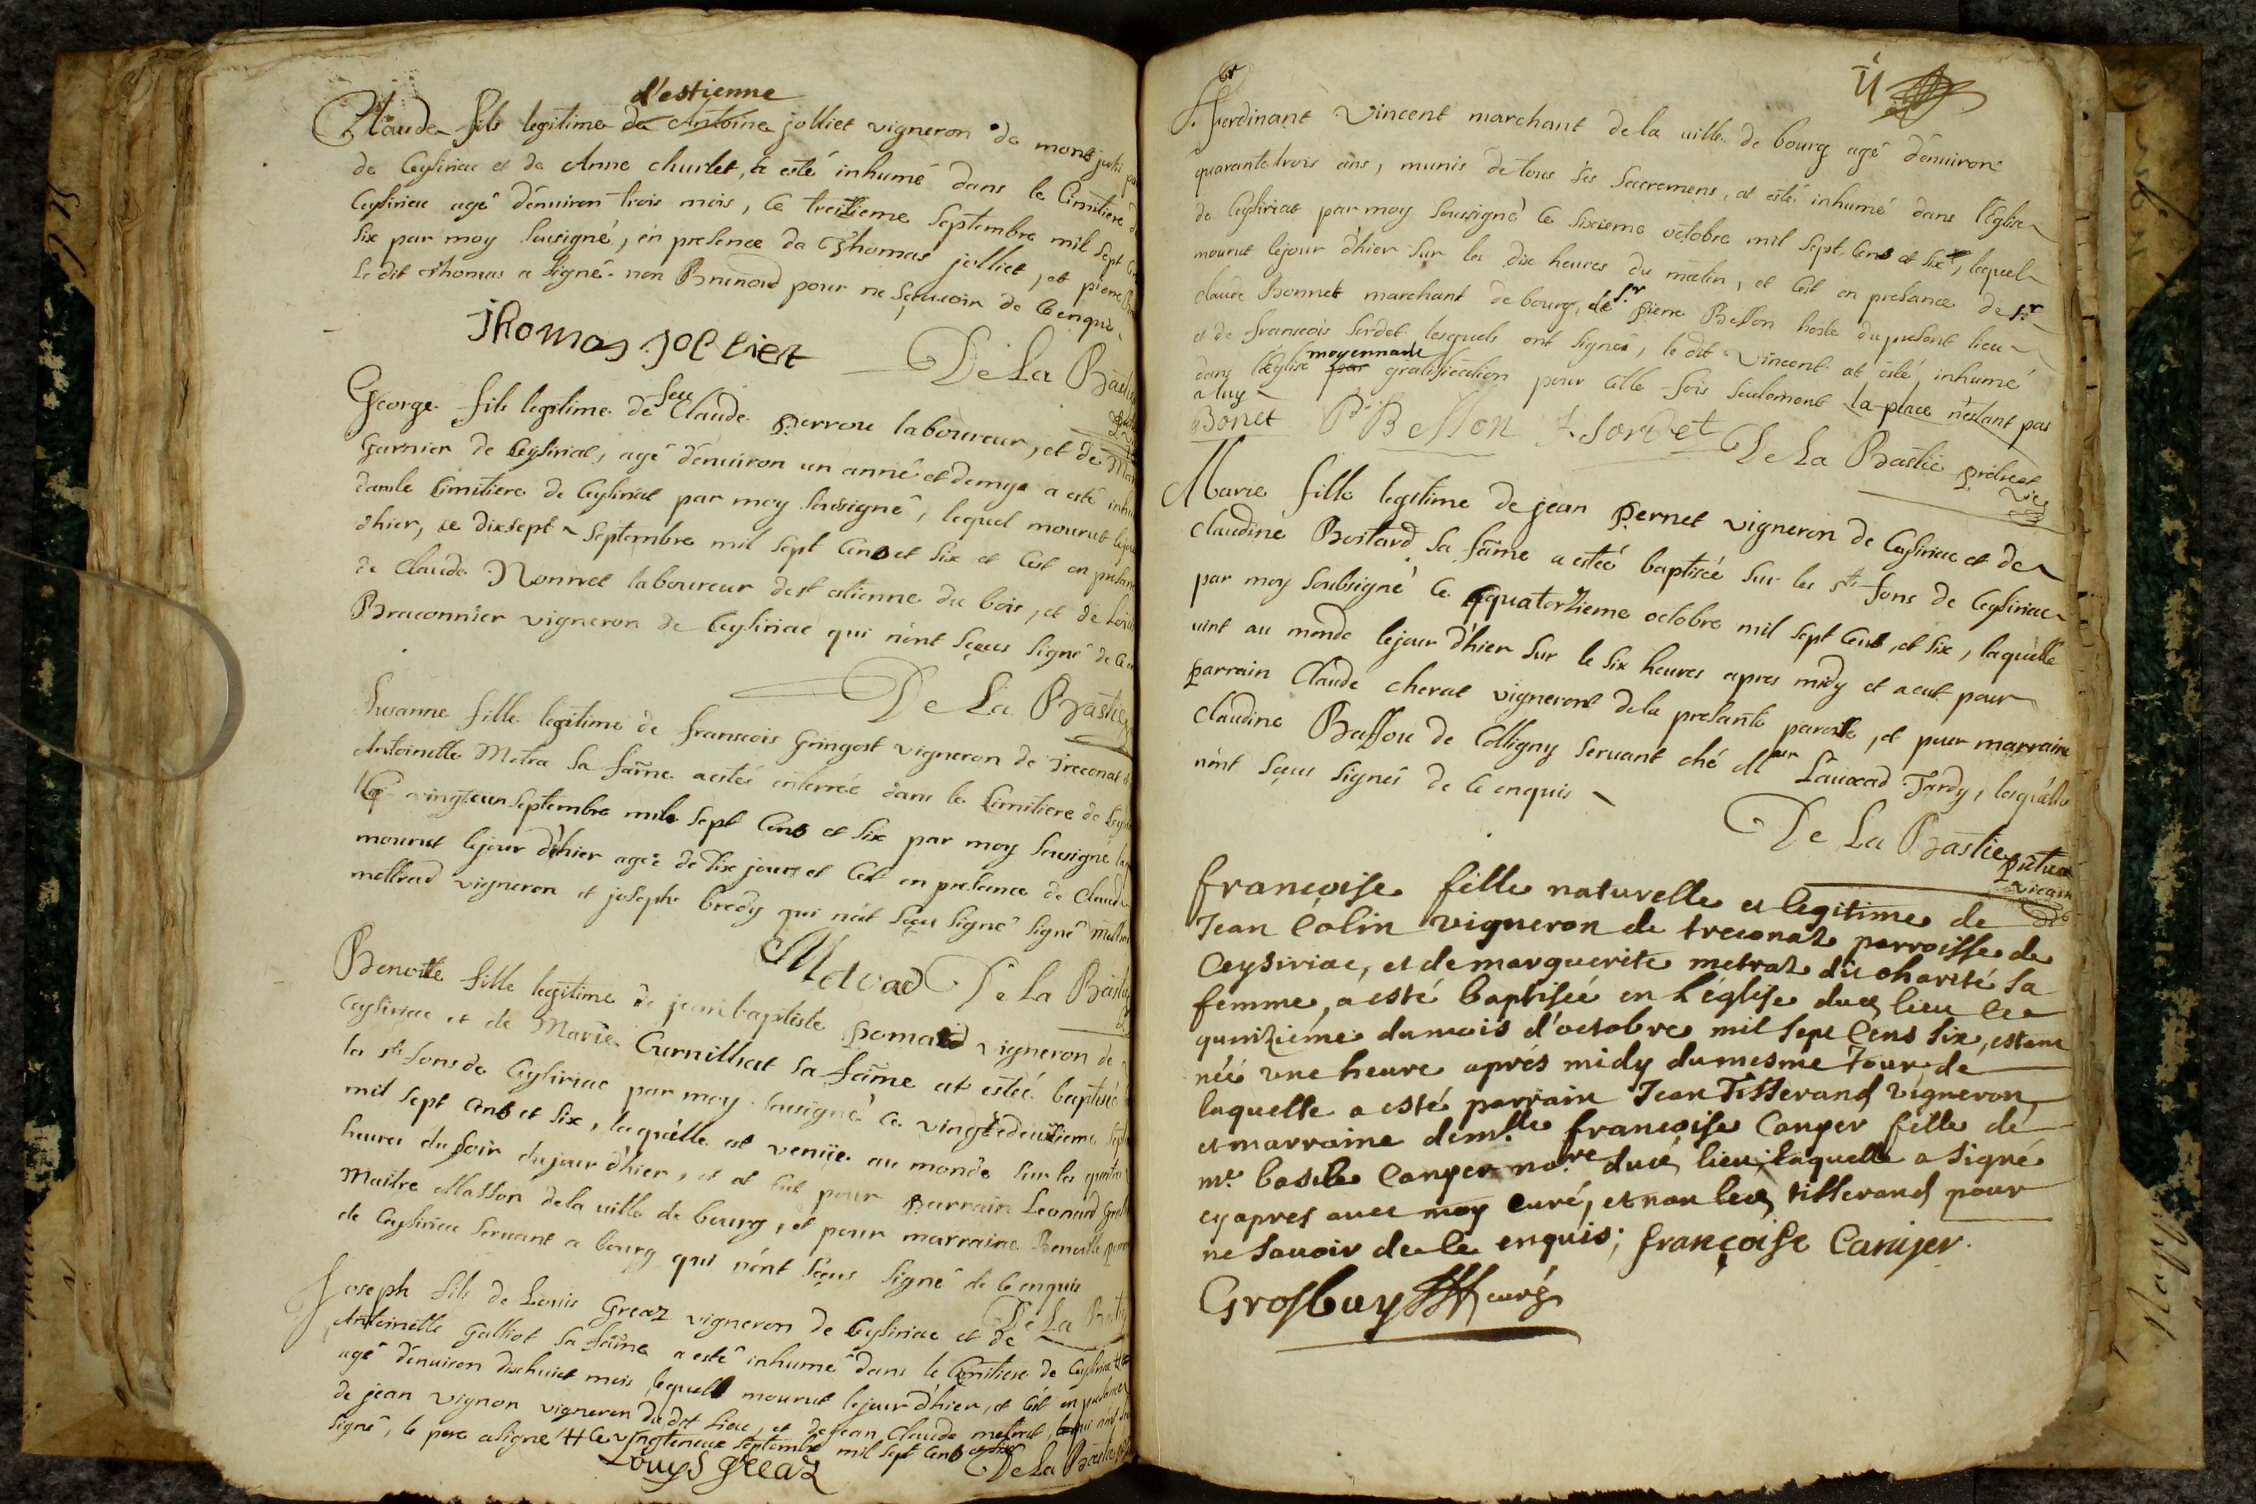 d'estienne
Claude fils legitime de Antoine jolliet vigneron de montjuli
de Ceysiriac et de Anne churlet, a esté inhumé dans le Cimitiere
Ceysiriac agé d'énuiron trois mois, ce treizieme Septembre mil sept
six par moy sousigné, en presence de Thomas jolliet, et pierre
le dit Thomas a signé non Brunod pour ne sçauoir de ce enquis
Thomas Jolliet
De La Bastie
George fils legitime de feu Claude perrou laboureur, et de
Garnier de Ceysiriat, agé d'énuiron un anné et demye a esté
dans le Cimitiere de Ceysiriat par moy sousigné, lequel mourut
d'hier, ce dixsept Septembre mil sept Cens et six et c'est en
de Claude Monnet laboureur de st estienne du bois, et de
Braconnier vigneron de Ceysiriac qui n'ont sçeus signé de
De La Bastie
Susanne fille legitime de francois Gringost vigneron de Treconat
Antoinette Metra sa fãme a estéé enterréé dans le Cimitiere de
le vingteun Septembre mil sept Cens et six par moy sousigné
mourut le jour d'hier agéé de dix jours et c'est en presence de Claude
mettrad vigneron et joseph bredy qui n'at sçeu signé signé
Metrad De La Bastie
Benoite fille legitime de jean baptiste pomard vigneron de
Ceysiriac et de Marie Curnillat sa fãme at estéé baptiséé
les sts fons de Ceysiriac par moy sousigné ce vingtedeuxieme
mil sept Cens et six, laquélle at venüe au monde sur les quatre
heures du soir du jour d'hier, et at eut pour parrain Leonard
Maitre Masson de la uille de bourg, et pour marraine Benoitte
de Ceysiriac seruant a bourg qui n'ont sçeus signé de ce enquis
De La
Joseph fils de Louis Greaz vigneron de Ceysiriac et de
Antoinette Galliot sa fãme a esté inhumé dans le Cimitiere de Ceysiriac
agé d'énuiron dixhuict mois lequell mourut le jour d'hier, et c'ét en
de jean vignon vigneron du dit lieu, et de jean Claude metrat,
signé, le pere a signé # Ce vingteneuf septembre mil sept Cens et six
Louys greaz De La Bastie
st
11
Sr. ferdinant Vincent marchant de la uille de bourg agé d'énuiron
quarante trois ans, munis de tous ses sacremens, at esté inhumé dans l'Eglise
de Ceysiriat par moy sousigné ce sixieme octobre mil sept Cens et six, lequel
mourut le jour d'hier sur les dix heures du matin, et c'est en presance de sr
claude Bonnet marchant de bourg, de sr pierre Besson hoste du present lieu
et de francois sordet lesquels ont signés, le dit Vincent at esté inhumé
dans l'Eglise par moyennant gratification pour cette fois seulement la place n'estant pas
a luy
Bonet P Besson f. sordet De La Bastie prêtre et
vicʳᵉ
Marie fille legitime de jean pernet vigneron de Ceysiriac et de
claudine Bostard sa fãme a estéé baptiséé sur les sts fons de Ceysiriac
par moy soubsigné ce quatorzieme octobre mil sept Cens et six, laquélle
uint au monde le jour d'hier sur le six heures apres midy et a eut pour
parrain Claude cherat vigneront de la presante paroisse, et pour marraine
claudine Bassou de Colligny seruant ché Mʳ Tardy, lesquéls
n'ont sçeus signés de ce enquis
De La Bastie prêtre et
vicaire
françoise fille naturelle et legitime de
Jean Colin vigneron de treconaz parroisse de
Ceysiriac, et de marguerite metraz dit charité sa
femme, a esté baptiséé en l'église dud lieu le
quinziéme du mois d'octobre mil sept Cens six, estant
née une heure aprés midy du mesme Jour, de
laquelle a esté parrain Jean Tisserand vigneron,
et marraine demlle françoise Canyer fille de
mr. basile Canyer nore dud lieu, laquelle a signé
cy apres auec moy curé, et non led tisserand pour
ne sauoir de ce enquis; françoise Canyer.
Grosbuy curé